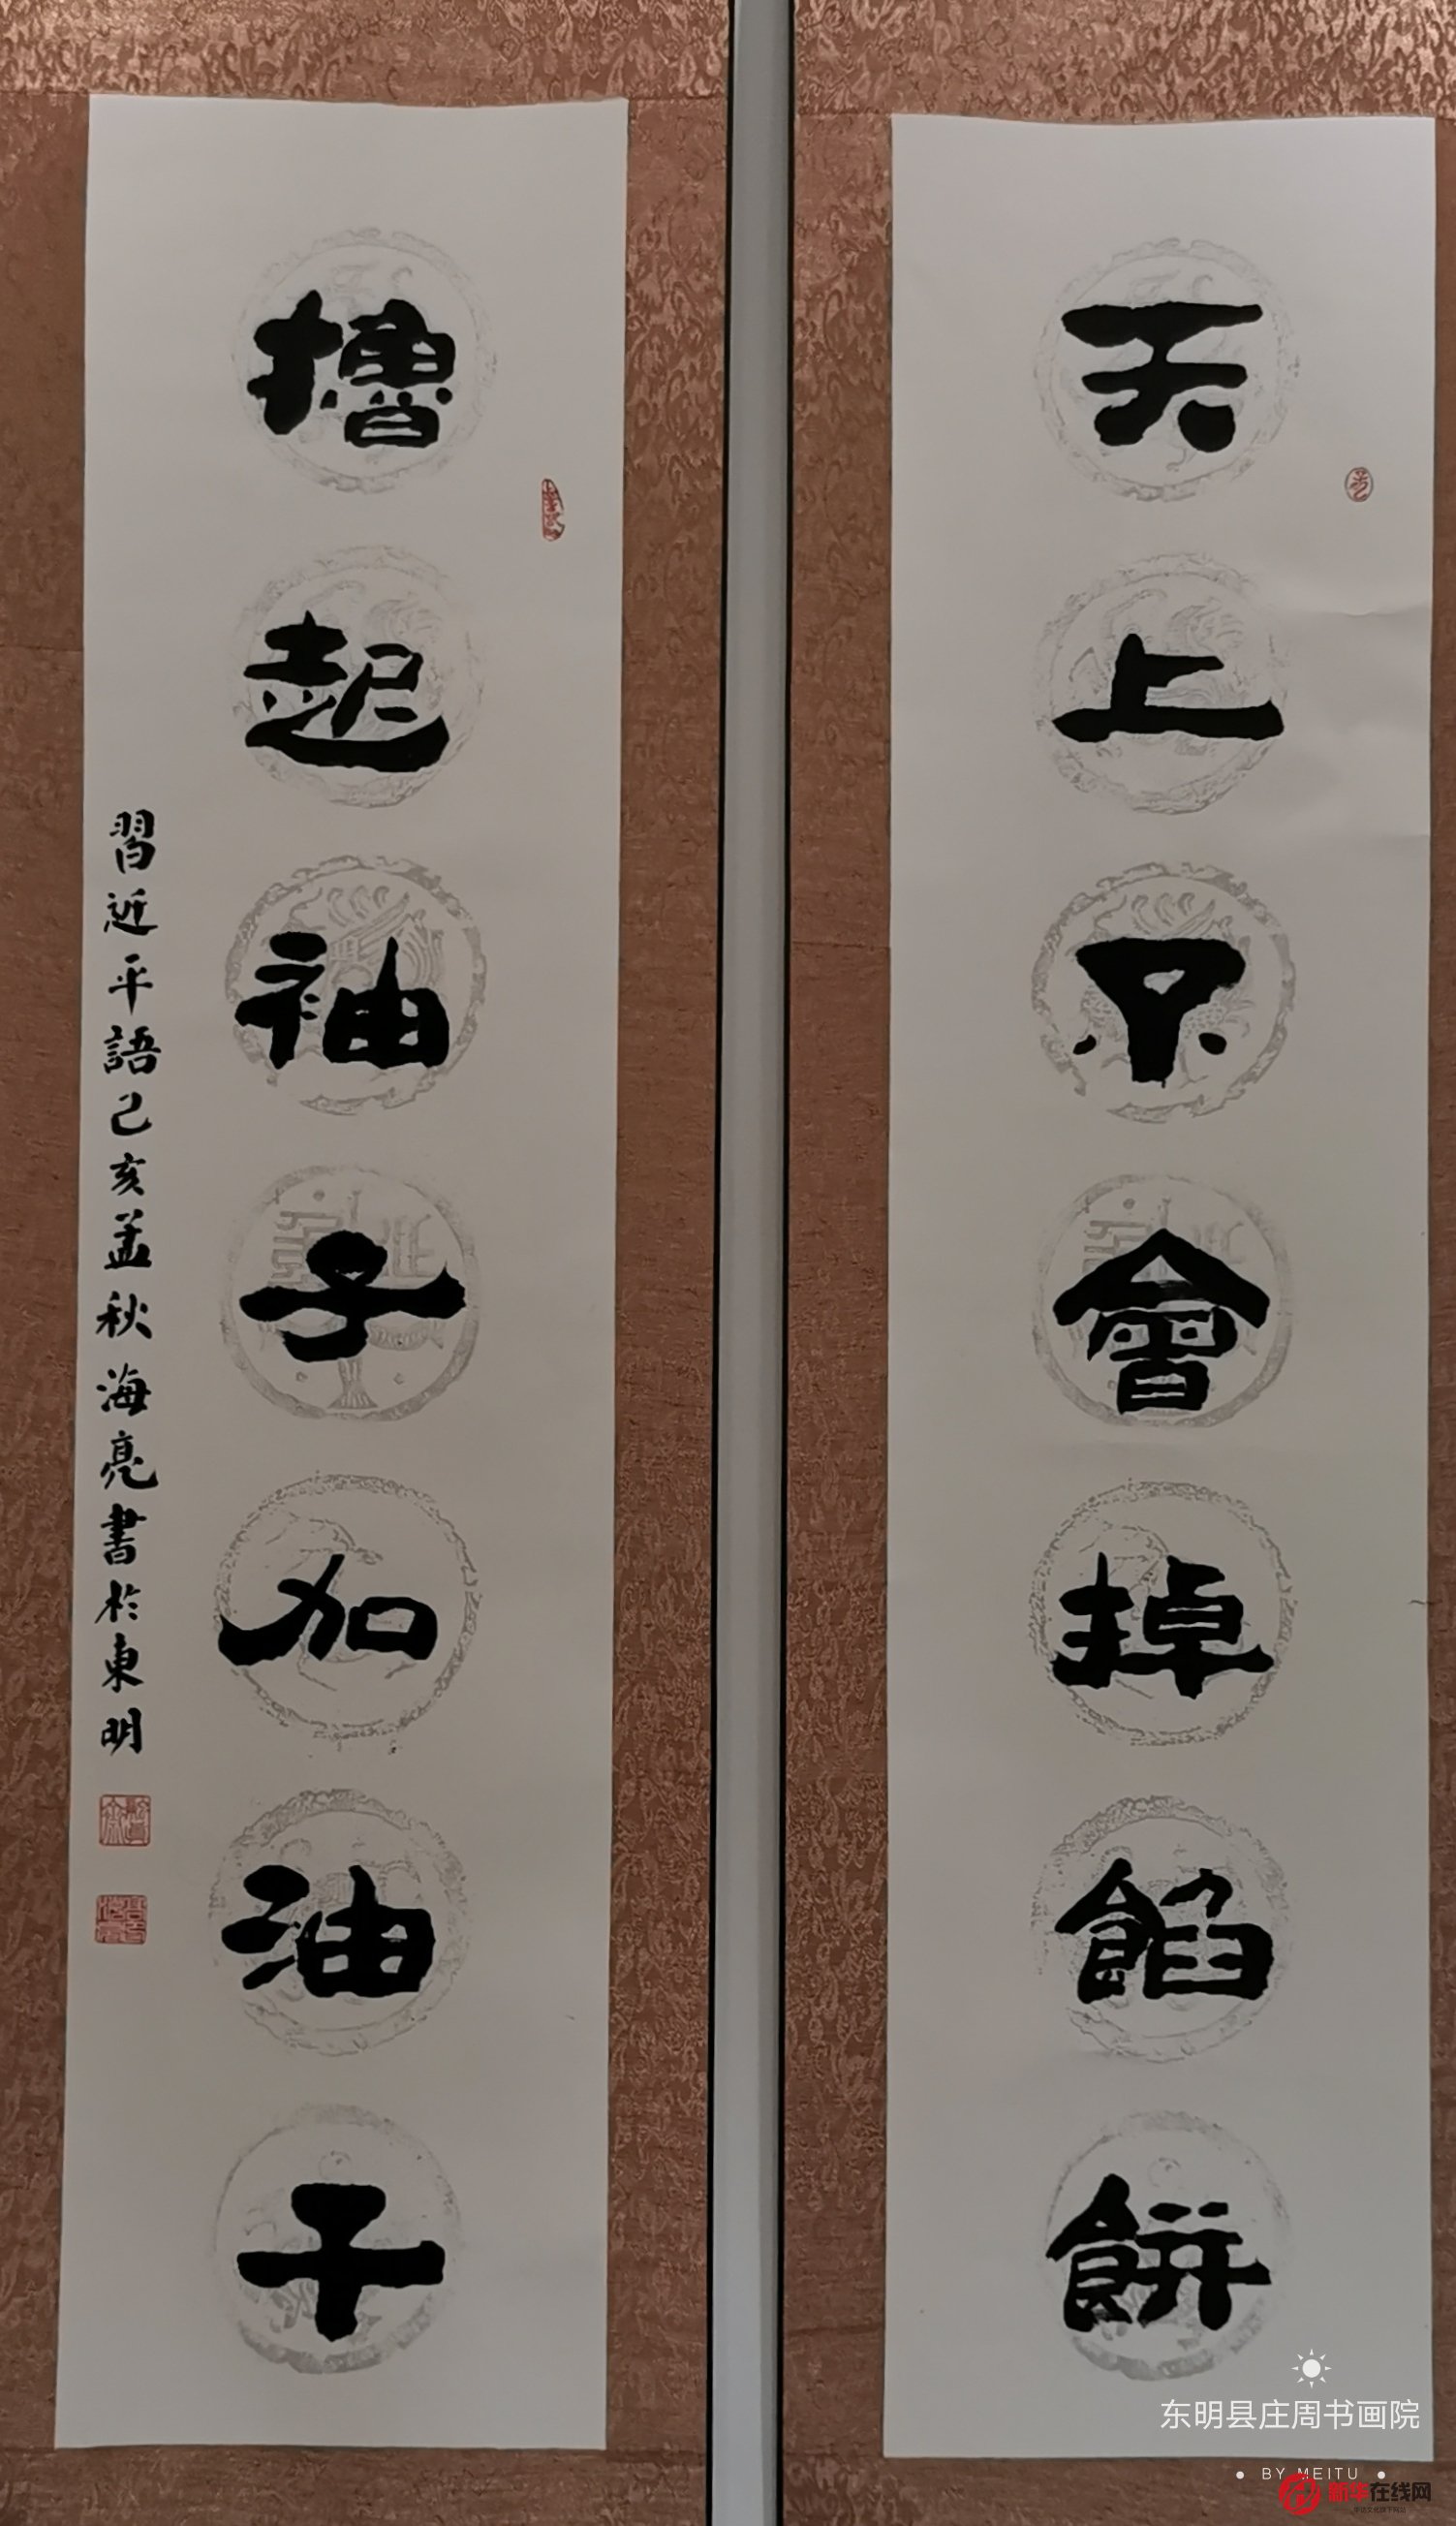 天上不會掉餡餅
擼起袖子加油干
習近平語己亥孟秋海亮書於東明
东明县庄周书画院
BY MEITU
新华在线网